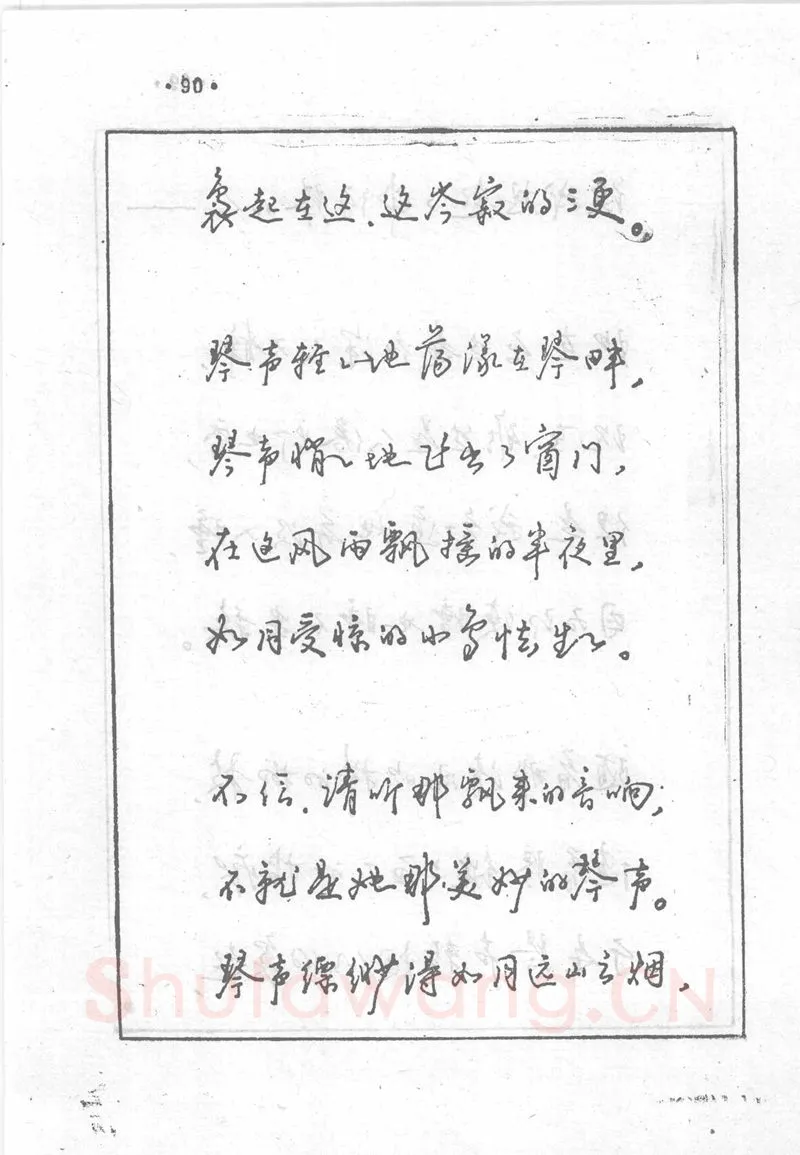 ·90·
袅起在这、这岑寂的三更。
琴声轻轻地荡漾在琴畔，
琴声悄悄地飞出了窗门，
在这风雨飘摇的半夜里，
如同受惊的小鸟怯生生。
不信，请听那飘来的音响；
不就是她那美妙的琴声。
琴声缥缈得如同远山云烟，
Shufawang.CN